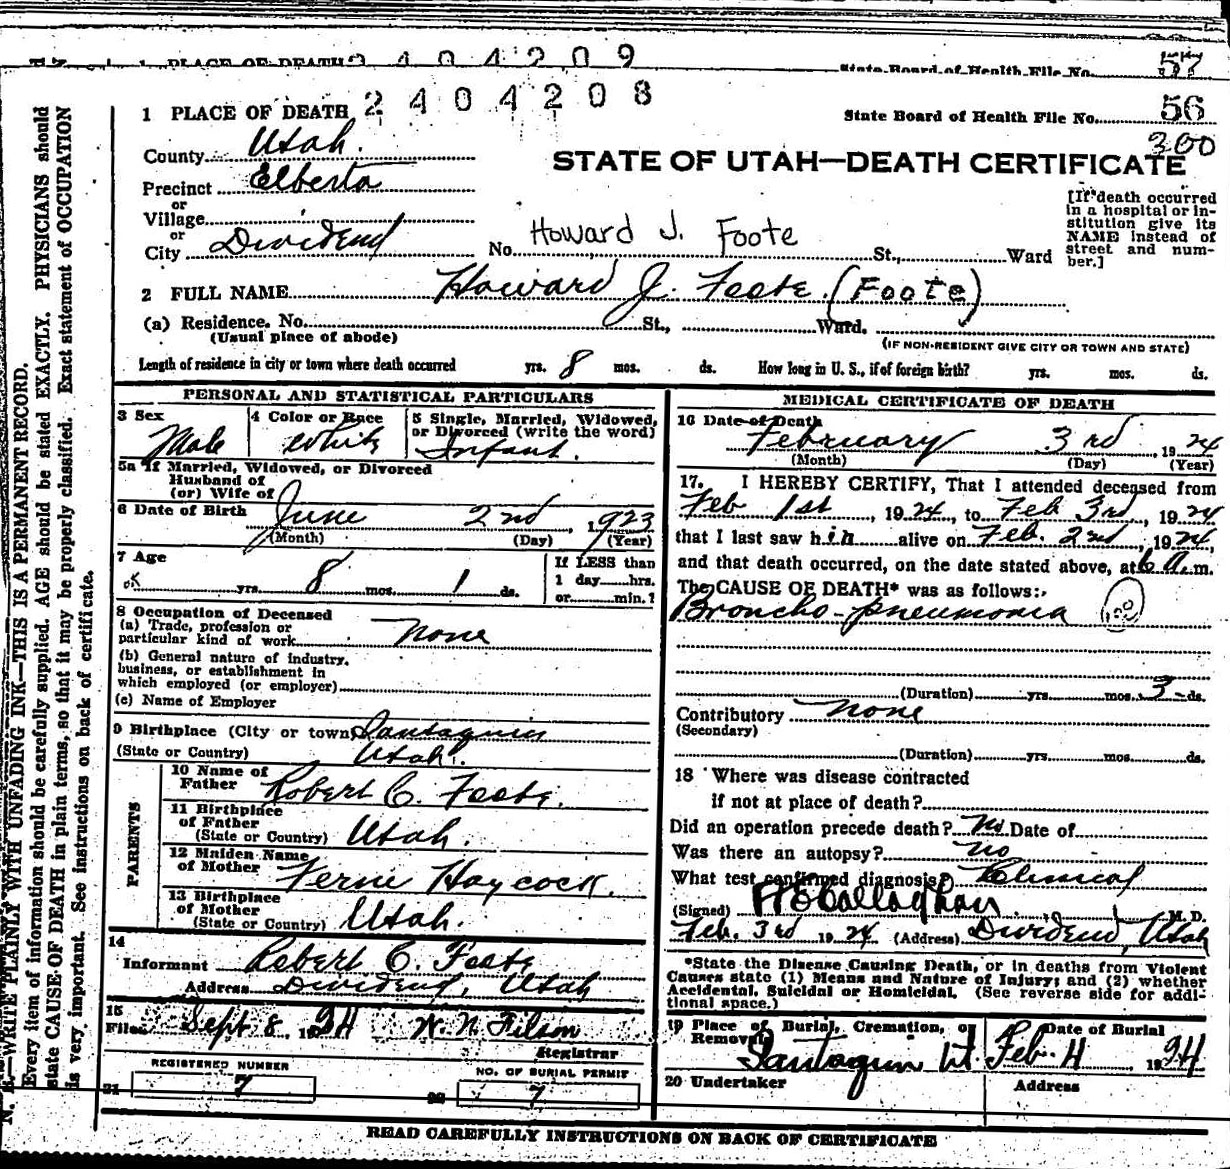 1 PLACE OF DEATH 2404209 State Board of Health File No. 57
1 PLACE OF DEATH 2404208 State Board of Health File No. 56
300
County Utah.
STATE OF UTAH—DEATH CERTIFICATE
Precinct Elberta
or
Village
or
City Dividend No. Howard J. Foote St., Ward
[If death occurred
in a hospital or in-
stitution give its
NAME instead of
street and num-
ber.]
2 FULL NAME Howard J. Foote. (Foote)
(a) Residence. No. St., Ward.
(Usual place of abode) (IF NON-RESIDENT GIVE CITY OR TOWN AND STATE)
Length of residence in city or town where death occurred yrs. 8 mos. ds. How long in U. S., if of foreign birth? yrs. mos. ds.
PERSONAL AND STATISTICAL PARTICULARS
3 Sex Male
4 Color or Race White
5 Single, Married, Widowed,
or Divorced (write the word)
Infant.
5a If Married, Widowed, or Divorced
Husband of
(or) Wife of
6 Date of Birth June 2nd, 1923
(Month) (Day) (Year)
7 Age
yrs. 8 mos. 1 ds.
If LESS than
1 day hrs.
or min.?
8 Occupation of Deceased
(a) Trade, profession or
particular kind of work none
(b) General nature of industry,
business, or establishment in
which employed (or employer)
(c) Name of Employer
9 Birthplace (City or town) Santaquin
(State or Country) Utah.
PARENTS
10 Name of
Father Robert C. Foote.
11 Birthplace
of Father
(State or Country) Utah.
12 Maiden Name
of Mother Ferne Haycock.
13 Birthplace
of Mother
(State or Country) Utah.
14
Informant Robert C. Foote
Address Dividend, Utah
15
Filed Sept 8, 1924 W. N. Filson
Registrar
REGISTERED NUMBER
21 7
NO. OF BURIAL PERMIT
22 7
MEDICAL CERTIFICATE OF DEATH
16 Date of Death
February 3rd, 1924
(Month) (Day) (Year)
17. I HEREBY CERTIFY, That I attended deceased from
Feb 1st, 1924, to Feb 3rd, 1924
that I last saw him alive on Feb. 2nd, 1924,
and that death occurred, on the date stated above, at 6 a.m.
The CAUSE OF DEATH* was as follows:
Broncho-pneumonia 100
(Duration) yrs. mos. 3 ds.
Contributory none
(Secondary)
(Duration) yrs. mos. ds.
18 Where was disease contracted
if not at place of death?
Did an operation precede death? No Date of
Was there an autopsy? no
What test confirmed diagnosis? Clinical
(Signed) H E Callaghan M. D.
Feb. 3rd 1924 (Address) Dividend, Utah
*State the Disease Causing Death, or in deaths from Violent
Causes state (1) Means and Nature of Injury; and (2) whether
Accidental, Suicidal or Homicidal. (See reverse side for addi-
tional space.)
19 Place of Burial, Cremation, or
Removal
Santaquin Ut
Date of Burial
Feb. 4 1924
20 Undertaker Address
READ CAREFULLY INSTRUCTIONS ON BACK OF CERTIFICATE
N. B.—WRITE PLAINLY WITH UNFADING INK—THIS IS A PERMANENT RECORD.
Every item of information should be carefully supplied. AGE should be stated EXACTLY. PHYSICIANS should
state CAUSE OF DEATH in plain terms, so that it may be properly classified. Exact statement of OCCUPATION
is very important. See instructions on back of certificate.